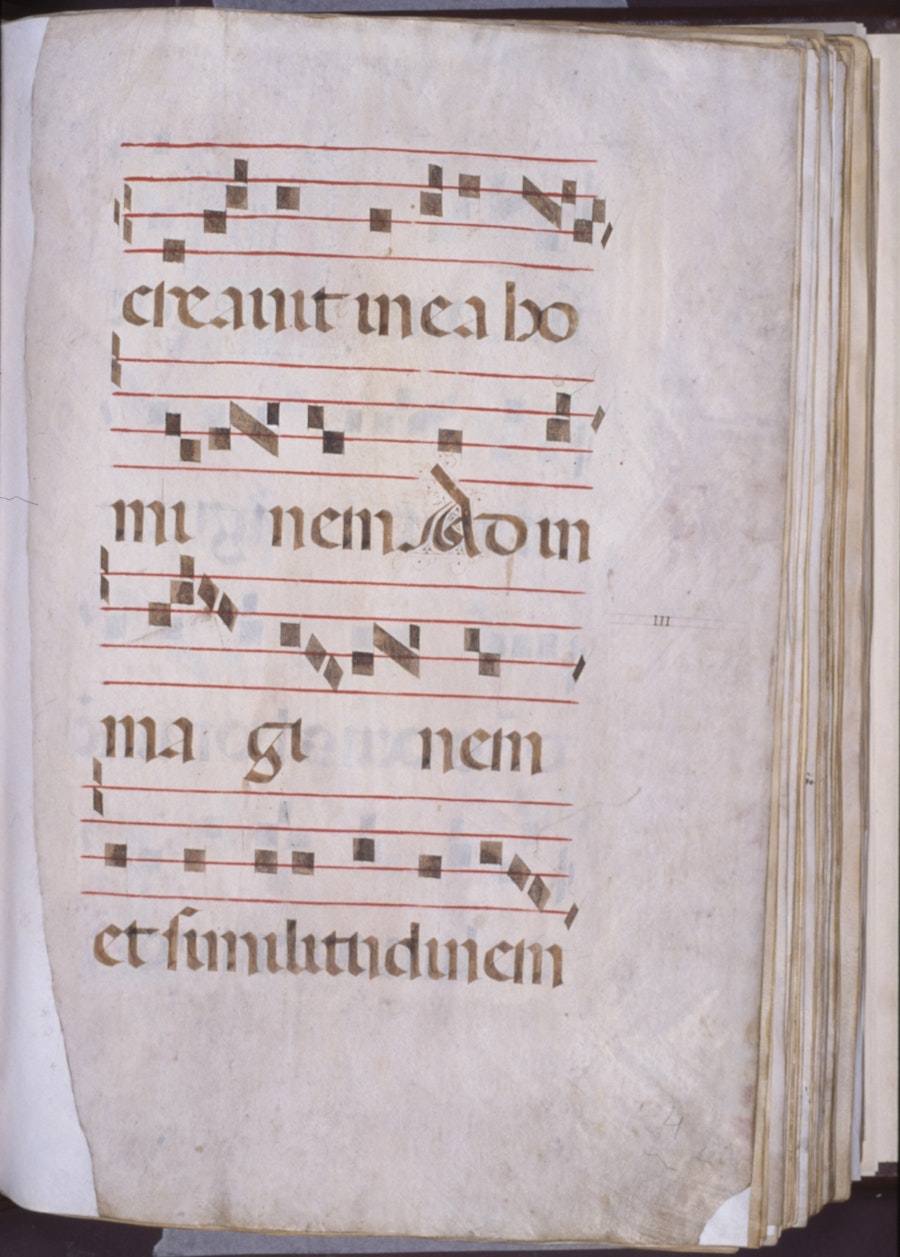 creauit in ea ho
mi nem Ad im
III
ma gi nem
et similitudinem